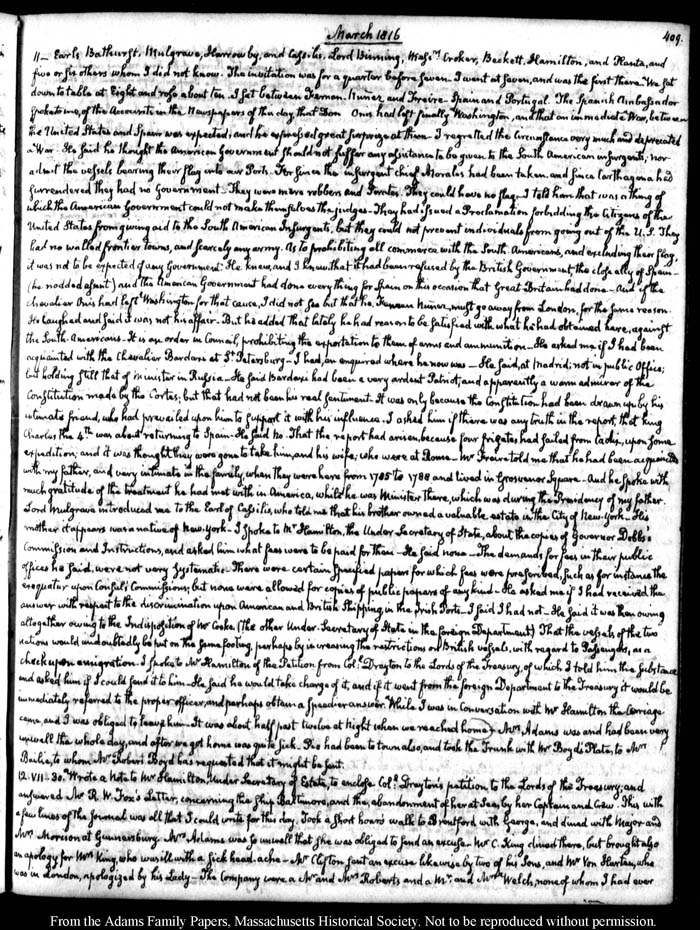 March 1816
409.
11— Earls Bathurst, Mulgrave, Harrowby, and Cassilis, Lord Binning, Mess.rs Croker, Beckett, Hamilton, and Planta, and
five or six others whom I did not know. The invitation was for a quarter before seven. I went at seven, and was the first there. We sat
down to table at eight and rose about ten. I sat between Fernan Nuñez, and Freire—Spain and Portugal. The Spanish Ambassador
spoke to me, of the Accounts in the Newspapers of the day, that Don Onis had left finally Washington, and that an immediate War, between
the United States and Spain was expected; and he expressed great surprize at them. I regretted the circumstance very much and deprecated
a War. He said he thought the American Government should not suffer any assistance to be given to the South American insurgents, nor
admit the vessels bearing their flag into our Ports. For since the insurgent chief Morales had been taken, and since Carthagena had
surrendered they had no Government. They were mere robbers and Pirates. They could have no flag. I told him that was a thing of
which the American Government could not make themselves the judges. They had issued a Proclamation forbidding the Citizens of the
United States from going aid to the South American Insurgents, but they could not prevent individuals from going out of the U.S. They
had no walled frontier towns, and scarcely any army. As to prohibiting all commerce with the South Americans, and excluding their flag,
it was not to be expected of any Government. He knew, and I knew that it had been refused by the British Government, the close ally of Spain—
(he nodded assent) and the American Government had done every thing for Spain on this occasion that Great Britain had done— And if the
Chevalier Onis had left Washington for that cause, I did not see but that he, Fernan Nuñez, must go away from London, for the same reason.
He laughed and said it was not his affair. But he added that lately he had reason to be satisfied with what he had obtained here, against
the South-Americans. It is an order in Council, prohibiting the exportation to them of arms and ammunition. He asked me if I had been
acquainted with the Chevalier Bardaxi at St. Petersburg— I had, an enquired where he now was— He said, at Madrid; not in public Office;
but holding still that of Minister in Russia— He said Bardaxi had been a very ardent Patriot, and apparently a warm admirer of the
Constitution made by the Cortes; but that had not been his real sentiment. It was only because the Constitution had been drawn up by his
intimate friend, who had prevailed upon him to support it with his influence. I asked him if there was any truth in the report, that king
Charles the 4.th was about returning to Spain. He said no. That the report had arisen, because four frigates had sailed from Cadiz, upon some
expedition; and it was thought they were gone to take him, and his wife; who were at Rome— Mr Freire told me that he had been acquainted
with my father, and very intimate in the family, when they were here from 1785 to 1788 and lived in Grosvenor Square— And he spoke with
much gratitude of the treatment he had met with in America, whilst he was Minister there, which was during the Presidency of my father.
Lord Mulgrave introduced me to the Earl of Cassilis, who told me that his brother owned a valuable estate in the City of New-York— His
mother it appears was a native of New-York— I spoke to Mr Hamilton, the Under Secretary of State, about the copies of Governor Dobbs's
Commission and Instructions, and asked him what fees were to be paid for them— He said none— The demands for fees in their public
offices he said, were not very systematic. There were certain specified papers for which fees were prescribed, such as for instance the
exequatur upon Consuls' Commissions; but none were allowed for copies of public papers of any kind— He asked me if I had received the
answer with respect to the discrimination upon American and British Shipping, in the Irish Ports— I said I had not— He said it was then owing
altogether owing to the Indisposition of Mr Cooke (The other Under-Secretary of State in the foreign Department) That the vessels of the two
nations would undoubtedly be put on the same footing, perhaps by increasing the restrictions on British vessels, with regard to Passengers, as a
check upon emigration. I spoke to Mr Hamilton of the Petition from Col.l Drayton to the Lords of the Treasury, of which I told him the substance
and asked him if I could send it to him— He said he would take charge of it, and if it went from the foreign Department to the Treasury it would be
immediately referred to the proper officer, and perhaps obtain a speedier answer. While I was in Conversation with Mr Hamilton the Carriage
came, and I was obliged to leave him— It was about half past twelve at Night when we reached home. Mrs Adams was and had been very
unwell the whole day, and after we got home was quite sick. She had been to town also, and took the Trunk with Mr Boyd's Plate, to Mrs
Bailie, to whom Mr Robert Boyd has requested that it might be sent.
12. VII:30. Wrote a Note to Mr Hamilton, Under Secretary of Estate, to enclose Col.l Drayton's petition, to the Lords of the Treasury; and
answered Mr R. W. Fox's Letter, concerning the Ship Baltimore, and the abandonment of her at Sea, by her Captain and Crew. This with
a few lines of the Journal was all that I could write for this day. Took a short hour's walk to Brentford with George, and dined with Major and
Mrs Morrison at Gunnersbury. Mrs Adams was so unwell that she was obliged to send an excuse. Mr C. King dined there, but brought also
an apology for Mrs King, who was ill with a sick head-ache— Mr Clifton sent an excuse likewise by two of his Sons, and Mr Von Harten, who
was in London, apologized by his Lady— The Company were a Mr and Mrs Roberts, and a Mr. and Mrs Welch, none of whom I had ever
From the Adams Family Papers, Massachusetts Historical Society. Not to be reproduced without permission.